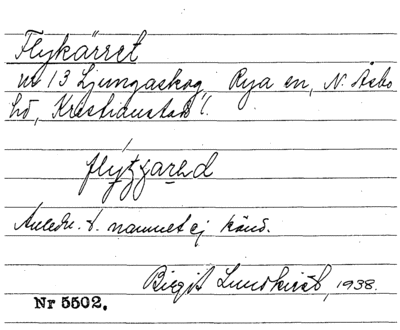 Flykärret
nr 13 Ljungaskog, Rya sn, N. Åsbo
hd, Kristianstads l.
Anledn. t. namnet ej känd.
Birgit Lundkvist, 1938.
Nr 5502.